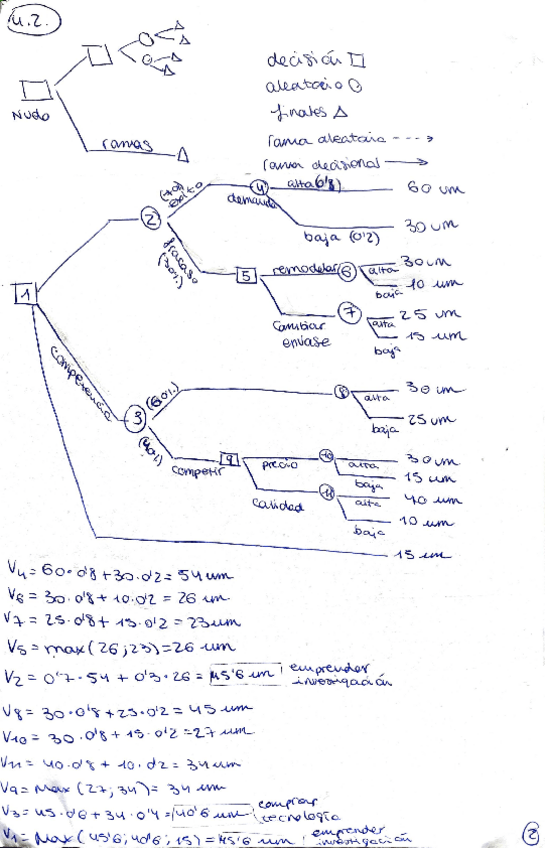 4.2.
decisión
aleatorio
finales
Nudo
rama aleatoria
ramas
rama decisional
éxito
alta (0'8)
60 um
4
demanda
2
baja (0'2)
30 um
fracaso
(30%)
remodelar
6
alta
30 um
5
baja
10 um
1
cambiar
envase
7
alta
25 um
baja
15 um
competencia
(60%)
8
alta
30 um
3
baja
25 um
(40%)
competir
9
precio
10
alta
30 um
baja
15 um
calidad
11
alta
40 um
baja
10 um
15 um
V4 = 60·0'8 + 30·0'2 = 54 um
V6 = 30·0'8 + 10·0'2 = 26 um
V7 = 25·0'8 + 15·0'2 = 23 um
V5 = max (26; 23) = 26 um
V2 = 0'7·54 + 0'3·26 = 45'6 um emprender
investigación
V8 = 30·0'8 + 25·0'2 = 45 um
V10 = 30·0'8 + 15·0'2 = 27 um
V11 = 40·0'8 + 10·0'2 = 34 um
V9 = max (27; 34) = 34 um
V3 = 45·0'6 + 34·0'4 = 40'6 um comprar
tecnología
V1 = max (45'6; 40'6; 15) = 45'6 um emprender
investigación
2